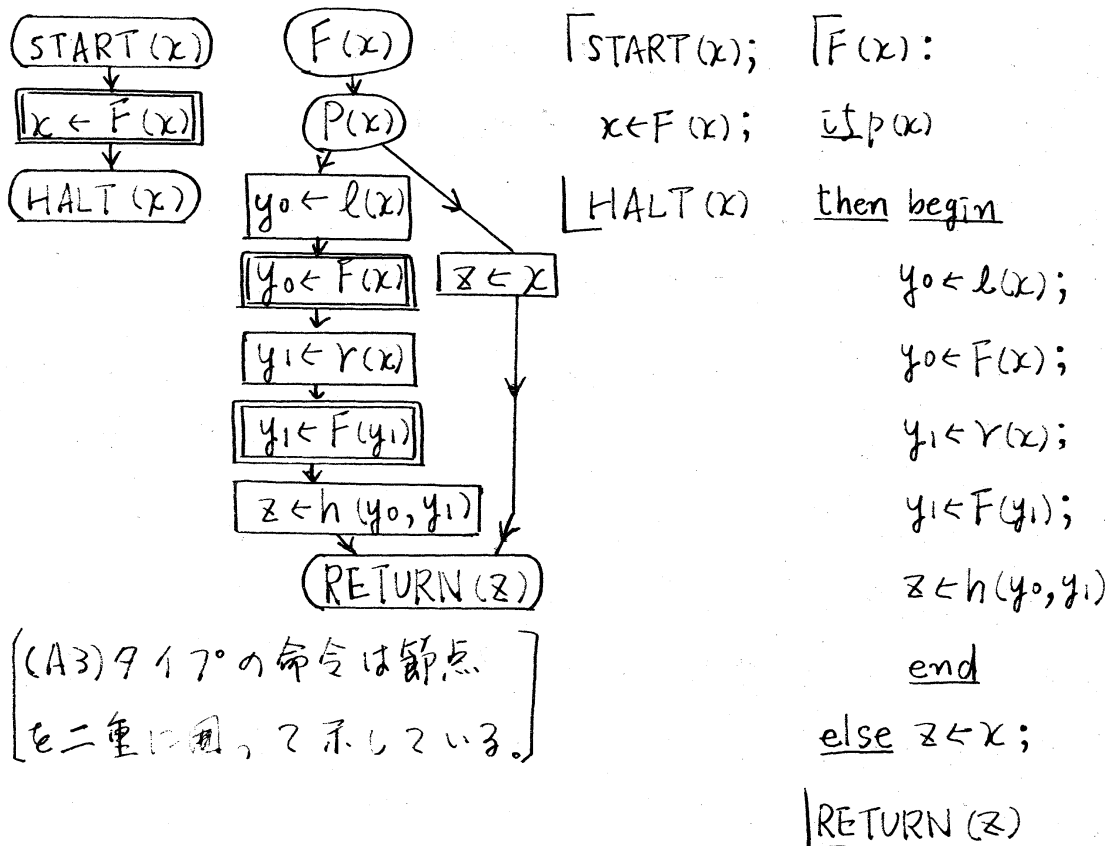 START(x)
x ← F(x)
HALT(x)
F(x)
P(x)
y₀ ← l(x)
y₀ ← F(x)
y₁ ← r(x)
y₁ ← F(y₁)
z ← h(y₀, y₁)
z ← x
RETURN(z)
(A3)タイプの命令は節点
を二重に囲って示している。
START(x);
x ← F(x);
HALT(x)
F(x):
if p(x)
then begin
y₀ ← l(x);
y₀ ← F(x);
y₁ ← r(x);
y₁ ← F(y₁);
z ← h(y₀, y₁)
end
else z ← x;
RETURN(z)